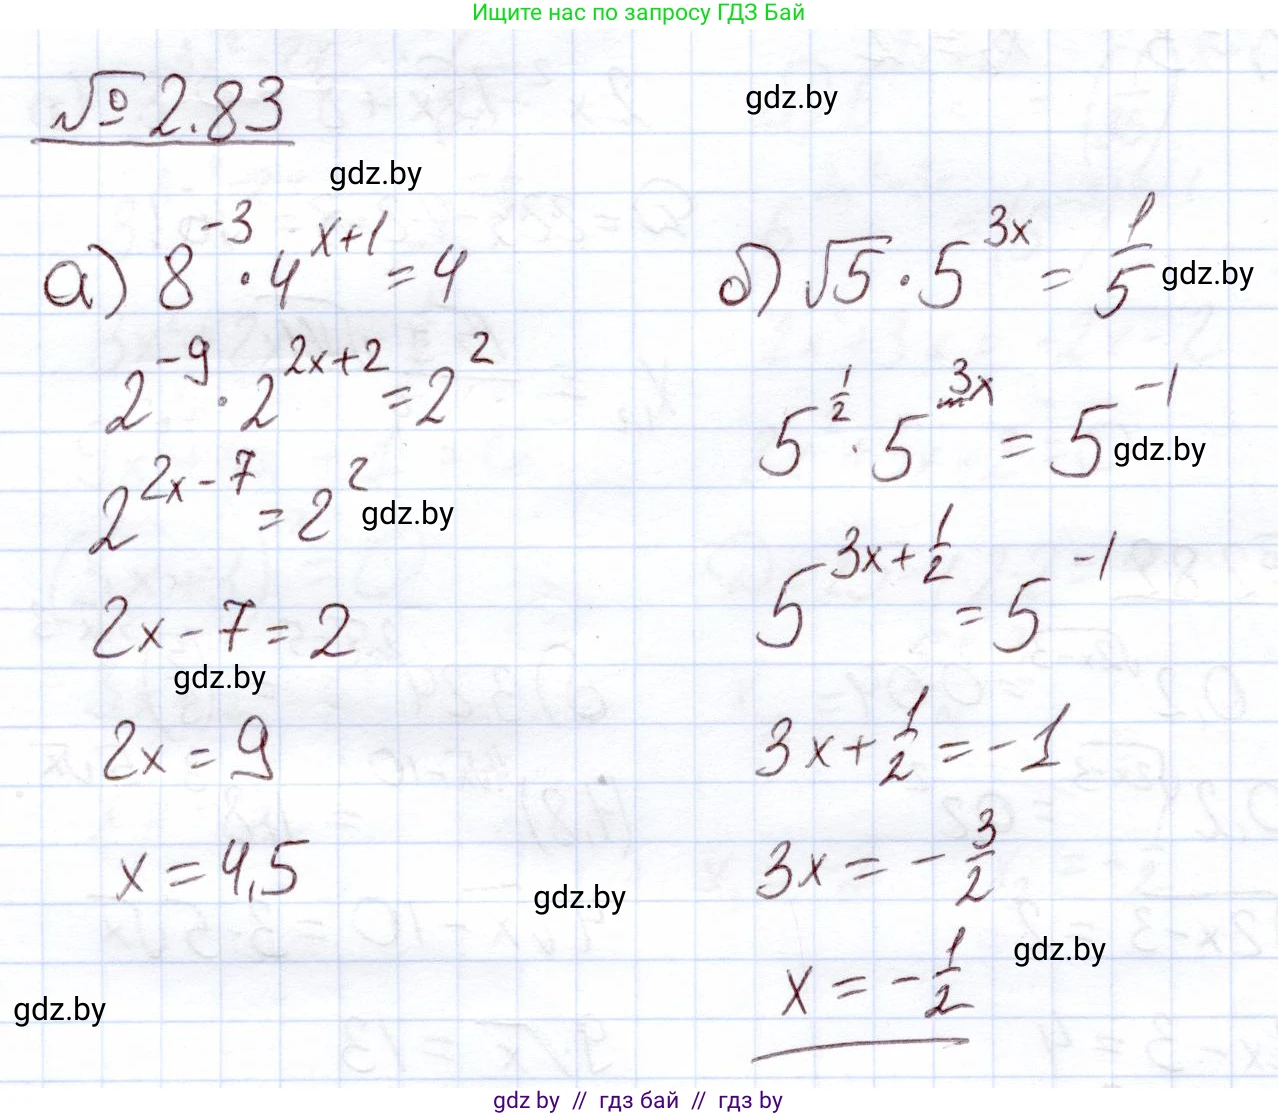 Ищите нас по запросу ГДЗ Бай
№ 2.83
gdz.by
gdz.by
а) 8^{-3} · 4^{x+1} = 4
2^{-9} · 2^{2x+2} = 2^2
2^{2x-7} = 2^2
gdz.by
2x - 7 = 2
gdz.by
2x = 9
x = 4,5
gdz.by
gdz.by
б) √5 · 5^{3x} = 1/5
gdz.by
5^{1/2} · 5^{3x} = 5^{-1}
gdz.by
5^{3x+1/2} = 5^{-1}
3x + 1/2 = -1
3x = - 3/2
gdz.by
x = - 1/2
gdz by // гдз бай // gdz by